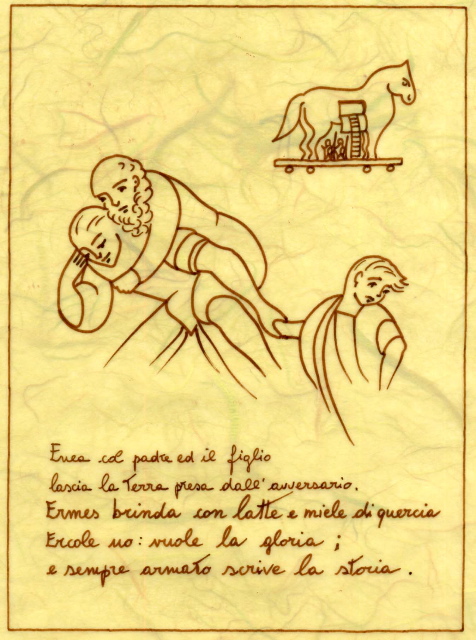 Enea col padre ed il figlio
lascia la Terra presa dall'avversario.
Ermes brinda con latte e miele di quercia
Ercole no: vuole la gloria;
e sempre armato scrive la storia.